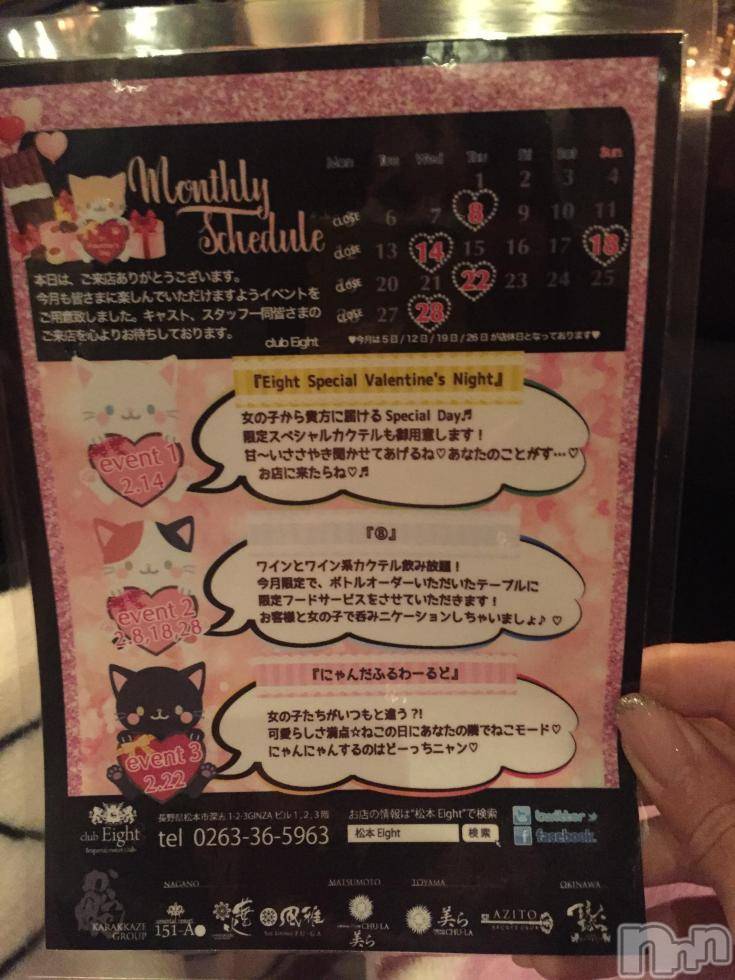 Monthly
Schedule
Mon Tue Wed Thu Fri Sat Sun
1 2 3 4
CLOSE 6 7 8 9 10 11
CLOSE 13 14 15 16 17 18
CLOSE 20 21 22 23 24 25
CLOSE 27 28
本日は、ご来店ありがとうございます。
今月も皆さまに楽しんでいただけますようイベントを
ご用意致しました。キャスト、スタッフ一同皆さまの
ご来店を心よりお待ちしております。
club Eight
♥今月は5日/12日/19日/26日が店休日となっております♥
『Eight Special Valentine's Night』
女の子から貴方に届けるSpecial Day♬
限定スペシャルカクテルも御用意します！
甘〜いささやき聞かせてあげるね♡あなたのことがす…♡
お店に来たらね♡♬
event 1
2.14
『⑧』
ワインとワイン系カクテル飲み放題！
今月限定で、ボトルオーダーいただいたテーブルに
限定フードサービスをさせていただきます！
お客様と女の子で呑みニケーションしちゃいましょ♪ ♡
event 2
2.8,18,28
『にゃんだふるわーるど』
女の子たちがいつもと違う?!
可愛らしさ満点☆ねこの日にあなたの隣でねこモード♡
にゃんにゃんするのはどーっちニャン♡
event 3
2.22
club Eight
長野県松本市深志1-2-3GINZAビル1,2,3階
tel 0263-36-5963
お店の情報は"松本 Eight"で検索
松本 Eight 検索
twitter
facebook
KARAKKAZE
GROUP
NAGANO MATSUMOTO TOYAMA OKINAWA
151-A
風雅
CHU-LA
美ら
美ら
CHU-LA
AZITO
nnn